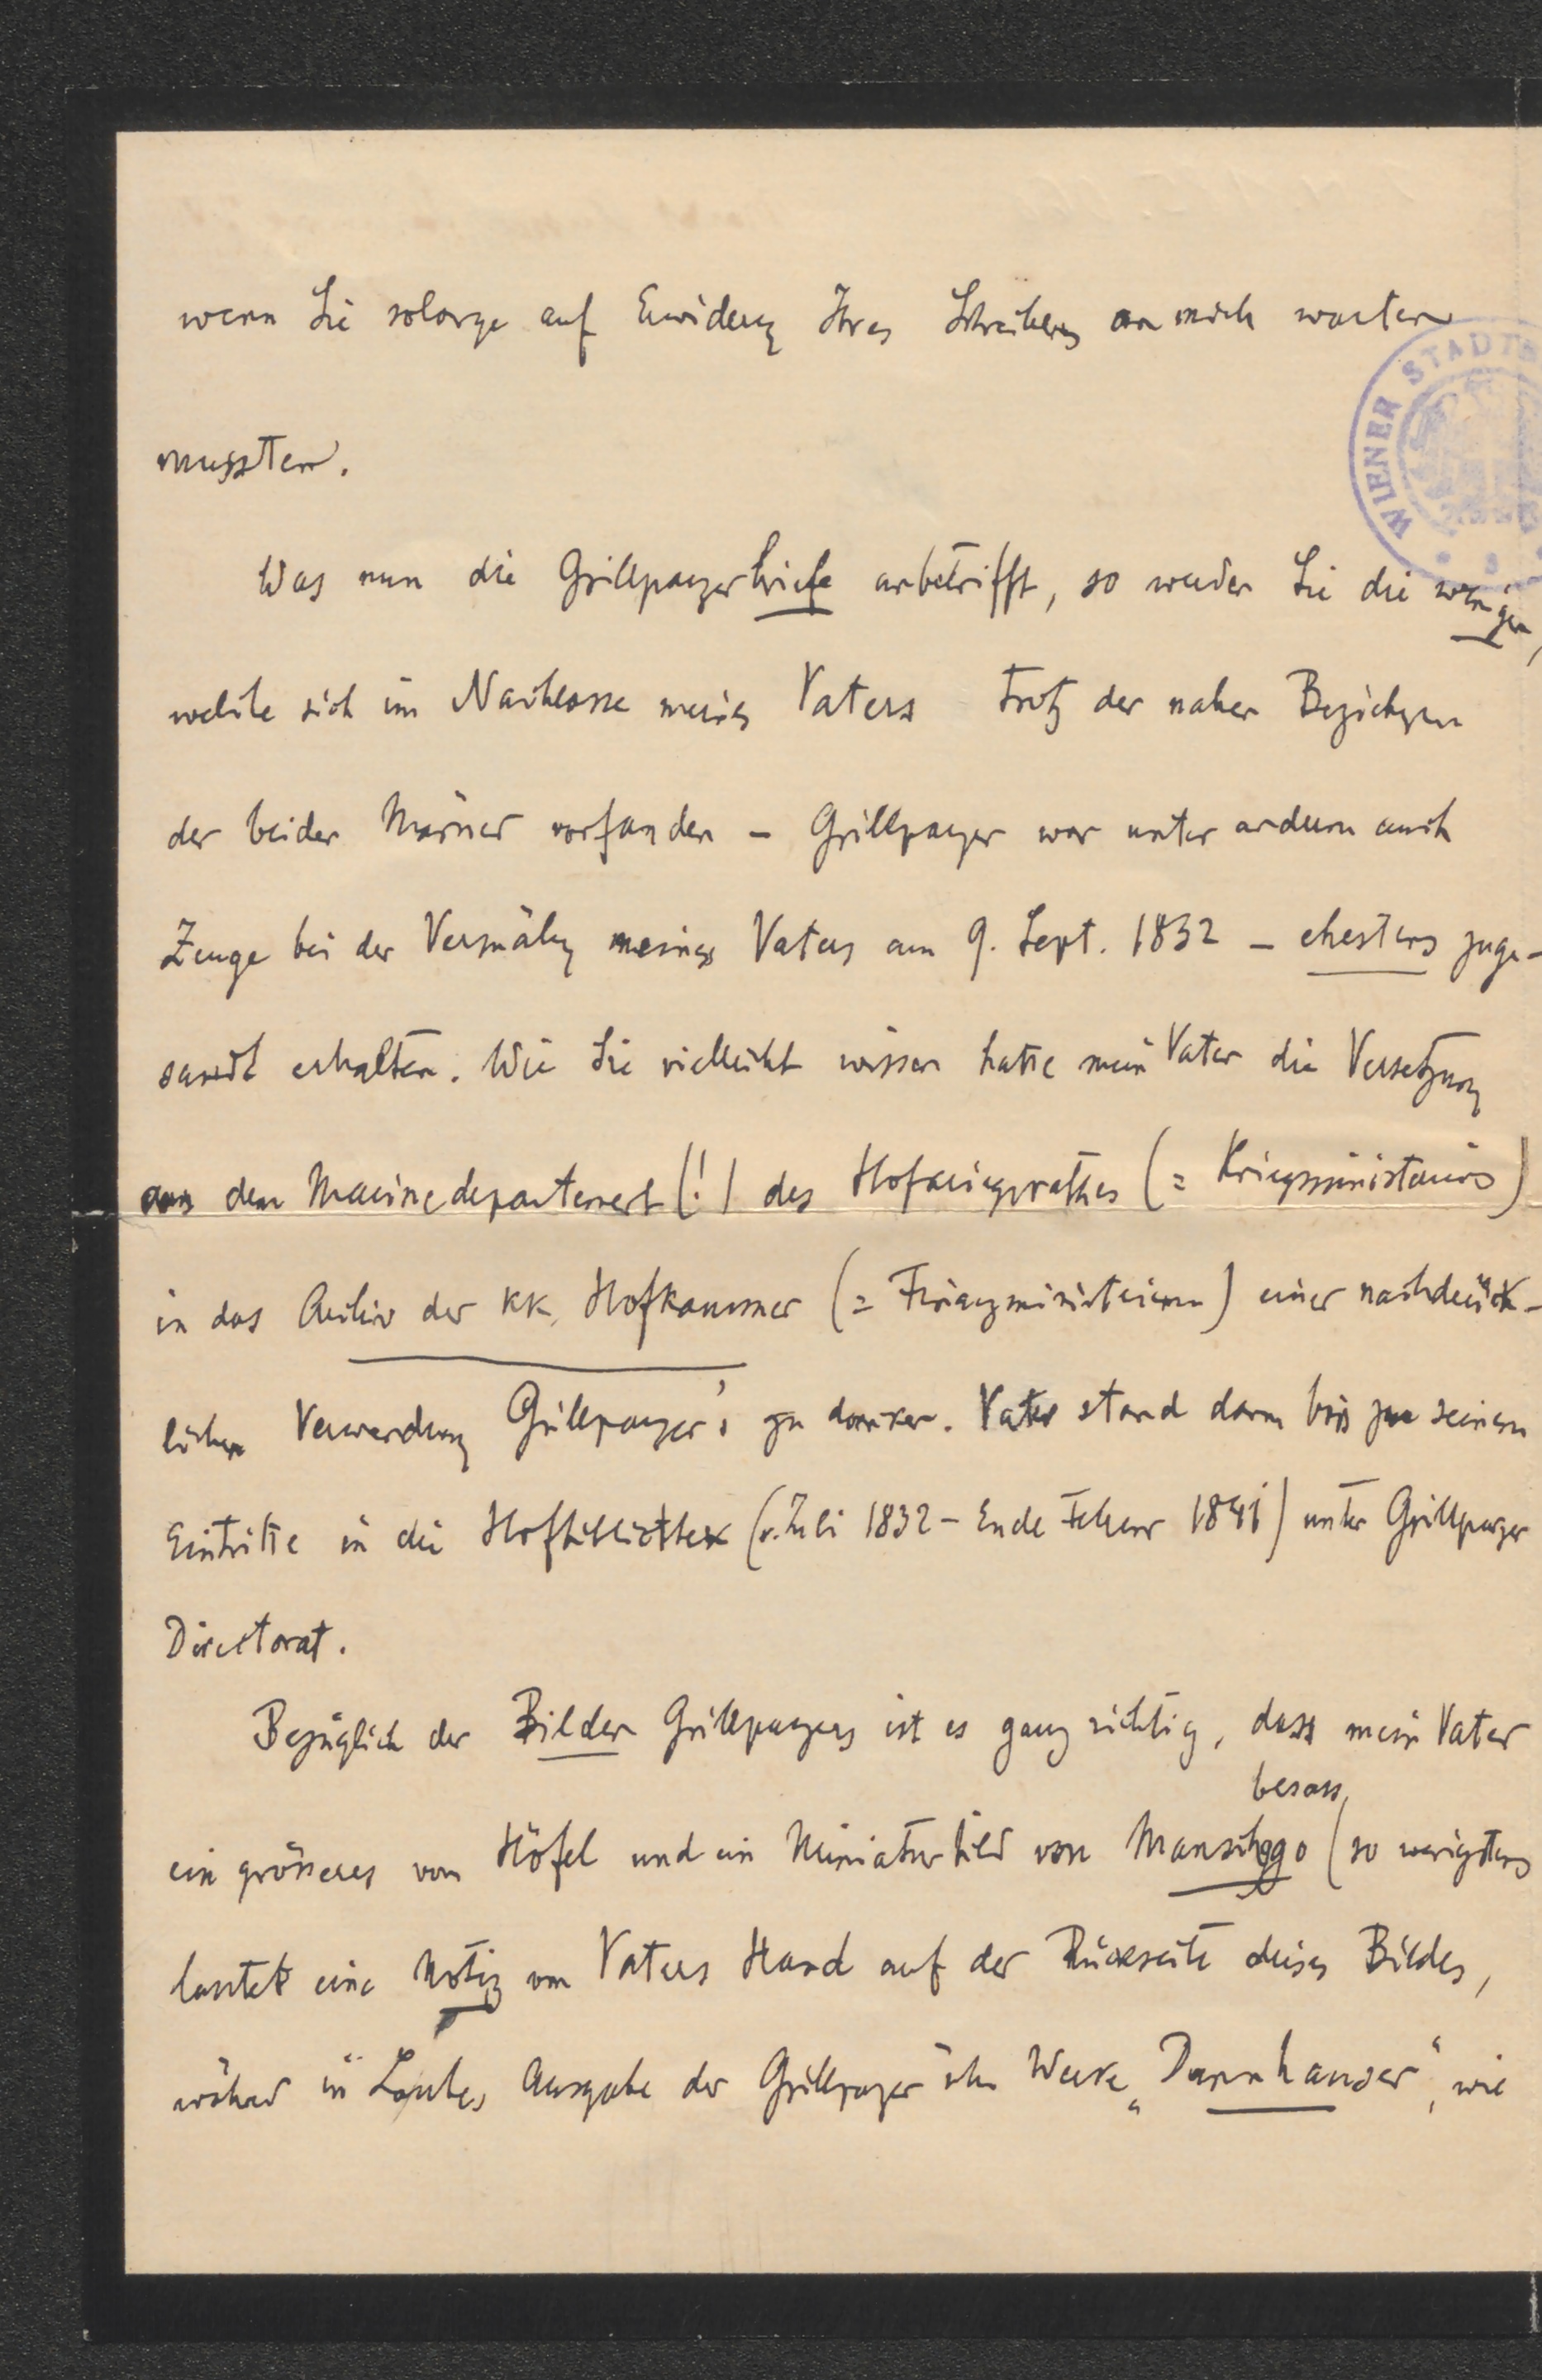 wenn Sie solange auf Erwiderung Ihres Schreibens an mich warten
mussten.
WIENER STADTB
Was nun die Grillparzerbriefe anbetrifft, so werden Sie die wenigen,
welche sich im Nachlasse meines Vaters trotz der nahen Beziehungen
der beiden Männer vorfanden – Grillparzer war unter anderm auch
Zeuge bei der Vermälung meines Vaters am 9. Sept. 1832 – ehestens zuge-
sandt erhalten. Wie Sie vielleicht wissen hatte mein Vater die Versetzung
aus dem Marinedepartement (!) des Hofkriegsrathes (= Kriegsministeriums)
in das Archiv der KK. Hofkammer (= Finanzministerium) einer nachdrück-
lichen Verwendung Grillparzer's zu danken. Vater stand dann bis zu seinem
Eintritte in die Hofbibliothek (v. Juli 1832 – Ende Feber 1841) unter Grillparzer
Directorat.
Bezüglich der Bilder Grillparzers ist es ganz richtig, dass mein Vater
besass,
ein grösseres von Höfel und ein Miniaturbild von Manschgo (so wenigstens
lautet eine Notiz von Vaters Hand auf der Rückseite dieses Bildes,
während in Laubes Ausgabe der Grillparzer'schen Werke „Dannhauser“, wie